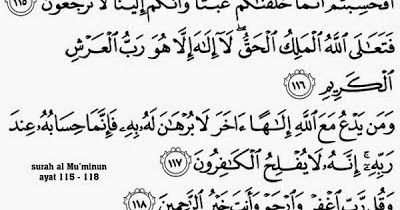 أَفَحَسِبْتُمْ أَنَّمَا خَلَقْنَٰكُمْ عَبَثًا وَأَنَّكُمْ إِلَيْنَا لَا تُرْجَعُونَ ﴿١١٥﴾
فَتَعَٰلَى ٱللَّهُ ٱلْمَلِكُ ٱلْحَقُّ ۖ لَآ إِلَٰهَ إِلَّا هُوَ رَبُّ ٱلْعَرْشِ
ٱلْكَرِيمِ ﴿١١٦﴾
وَمَن يَدْعُ مَعَ ٱللَّهِ إِلَٰهًا ءَاخَرَ لَا بُرْهَٰنَ لَهُۥ بِهِۦ فَإِنَّمَا حِسَابُهُۥ عِندَ
رَبِّهِۦٓ ۚ إِنَّهُۥ لَا يُفْلِحُ ٱلْكَٰفِرُونَ ﴿١١٧﴾
surah al Mu'minun
ayat 115 - 118
وَقُل رَّبِّ ٱغْفِرْ وَٱرْحَمْ وَأَنتَ خَيْرُ ٱلرَّٰحِمِينَ ﴿١١٨﴾